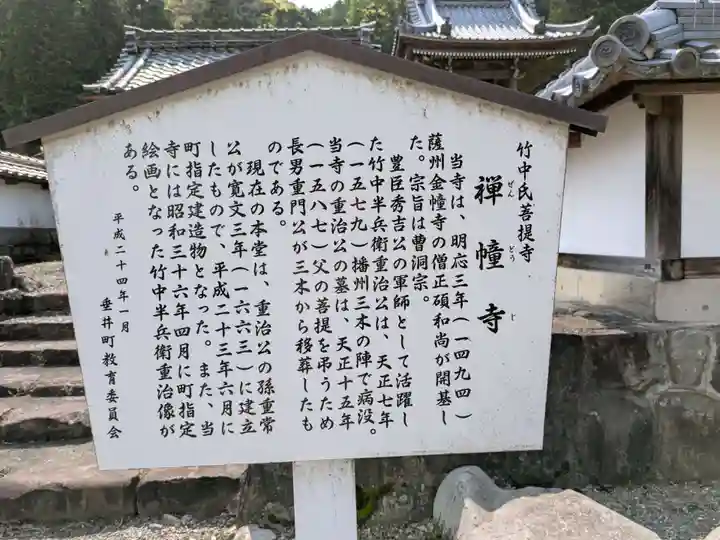 竹中氏菩提寺
禅幢寺
ぜんどうじ
当寺は、明応三年（一四九四）
薩州金幢寺の僧正碩和尚が開基し
た。宗旨は曹洞宗。
豊臣秀吉公の軍師として活躍し
た竹中半兵衛重治公は、天正七年
（一五七九）播州三木の陣で病没。
当寺の重治公の墓は、天正十五年
（一五八七）父の菩提を弔うため
長男重門公が三木から移葬したも
のである。
現在の本堂は、重治公の孫重常
公が寛文三年（一六六三）に建立
したもので、平成二十三年六月に
町指定建造物となった。また、当
寺には昭和三十六年四月に町指定
絵画となった竹中半兵衛重治像が
ある。
平成二十四年一月
垂井町教育委員会